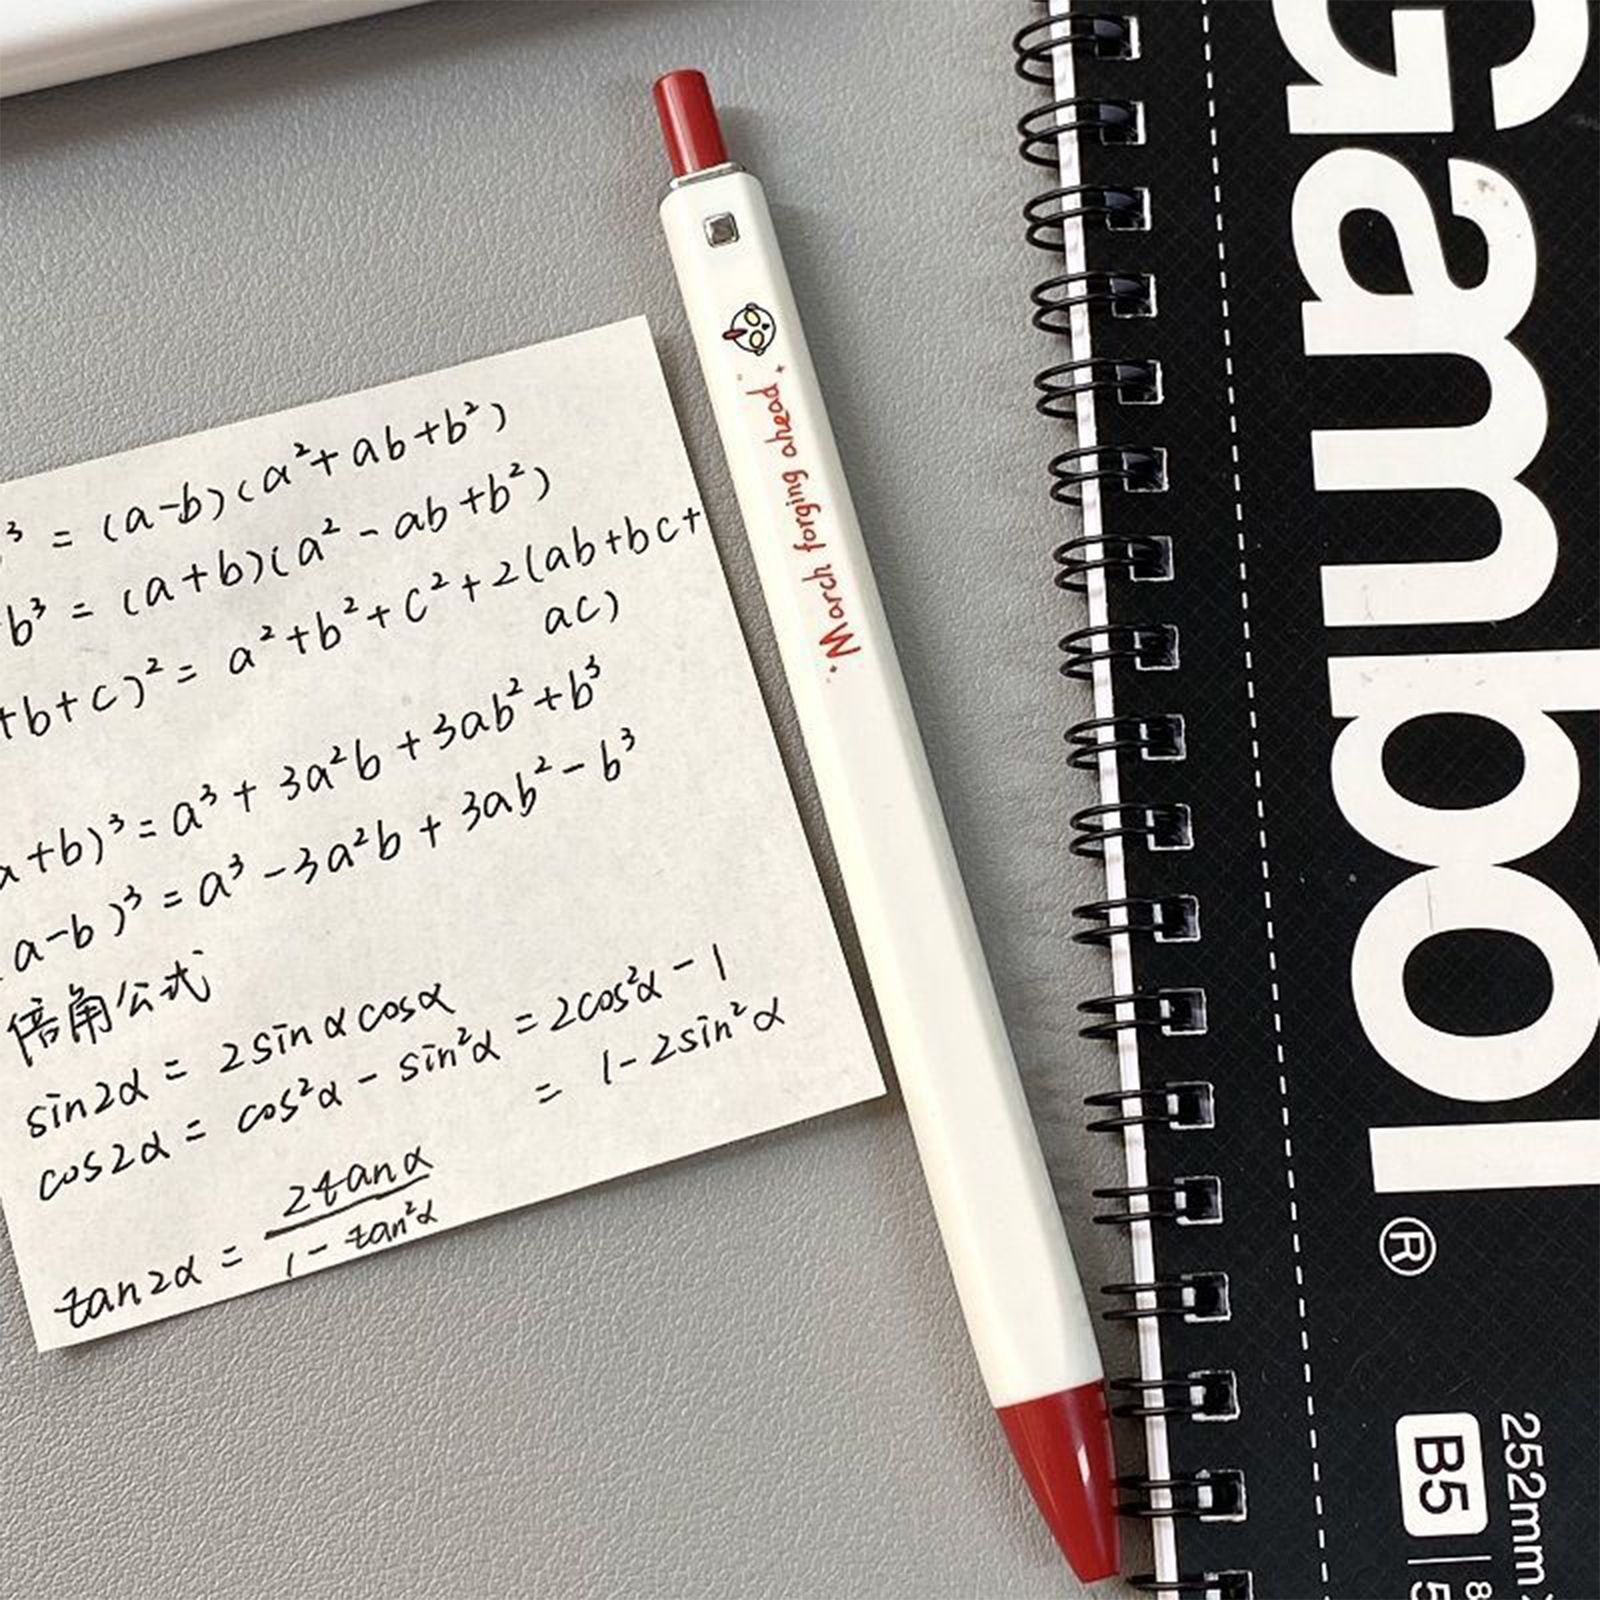 ³ = (a-b)(a²+ab+b²)
b³ = (a+b)(a²-ab+b²)
+b+c)² = a²+b²+c²+2(ab+bc+
ac)
a+b)³ = a³+3a²b+3ab²+b³
a-b)³ = a³-3a²b+3ab²-b³
倍角公式
sin2α = 2sinαcosα
cos2α = cos²α - sin²α = 2cos²α - 1
= 1-2sin²α
tan2α = 2tanα / 1-tan²α
March forging ahead
Gambol®
B5
252mm